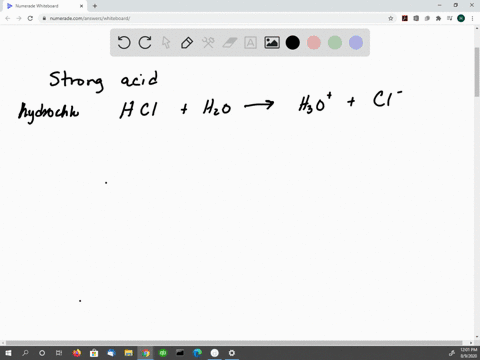 Numerade Whiteboard
numerade.com/answers/whiteboard/
Strong acid
hydrochlo HCl + H₂O → H₃O⁺ + Cl⁻
12:01 PM
8/9/2020